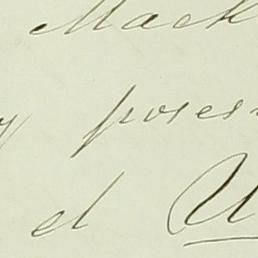 Mack
y poses
el U